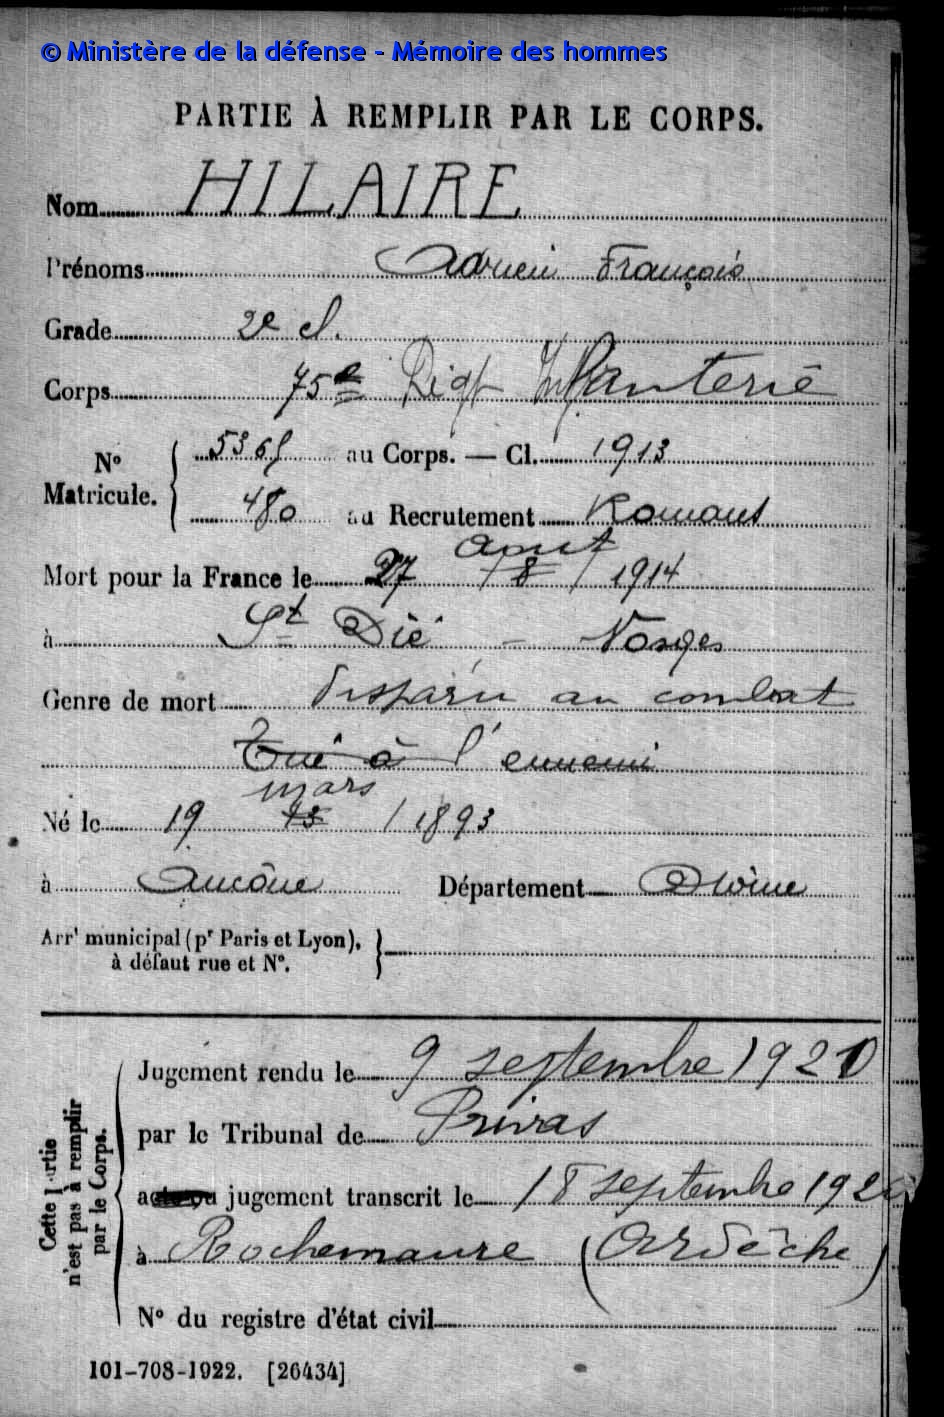 © Ministère de la défense - Mémoire des hommes
PARTIE À REMPLIR PAR LE CORPS.
Nom HILAIRE
Prénoms Adrien François
Grade 2e cl.
Corps 75e Régt Infanterie
N° Matricule. 5365 au Corps. — Cl. 1913
480 au Recrutement Romans
août
Mort pour la France le 27 / 8 / 1914
à St Dié - Vosges
Genre de mort disparu au combat
Tué à l'ennemi
mars
Né le 19 / 1893
à Ancône Département Drôme
Arrt municipal (pr Paris et Lyon),
à défaut rue et N°.
Cette partie n'est pas à remplir par le Corps.
Jugement rendu le 9 septembre 1920
par le Tribunal de Privas
acte ou jugement transcrit le 18 septembre 1920
à Rochemaure (Ardèche)
N° du registre d'état civil
101-708-1922. [26434]